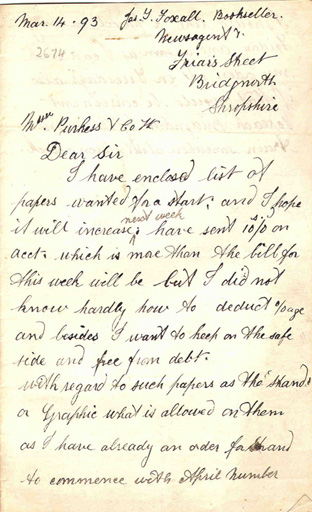 Mar. 14. 93 Jas. T. Foxall. Bookseller.
Newsagent &.
2674
Friars Street
Bridgnorth
Shropshire
Messrs Burgess & Co Ld
Dear Sir
I have enclosed list of
papers wanted for a start. and I hope
next week
it will increase. have sent 10s/0 on
acct. which is more than the bill for
this week will be but I did not
know hardly how to deduct %age
and besides I want to keep on the safe
side and free from debt.
with regard to such papers as the "Strand"
or Graphic what is allowed on them
as I have already an order for Strand
to commence with April Number